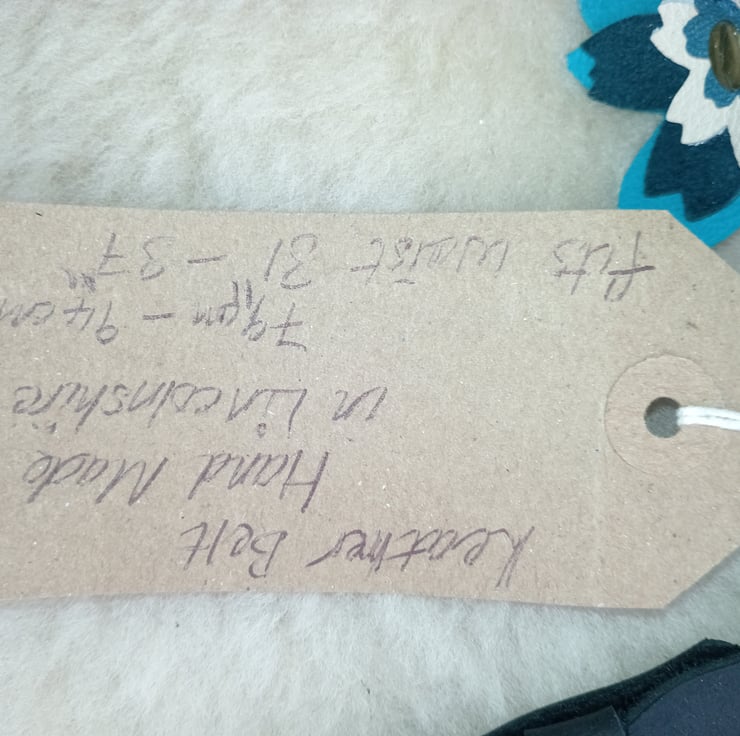 Leather Belt
Hand Made
in Lincolnshire
79cm - 94cm
fits waist 31" - 37"